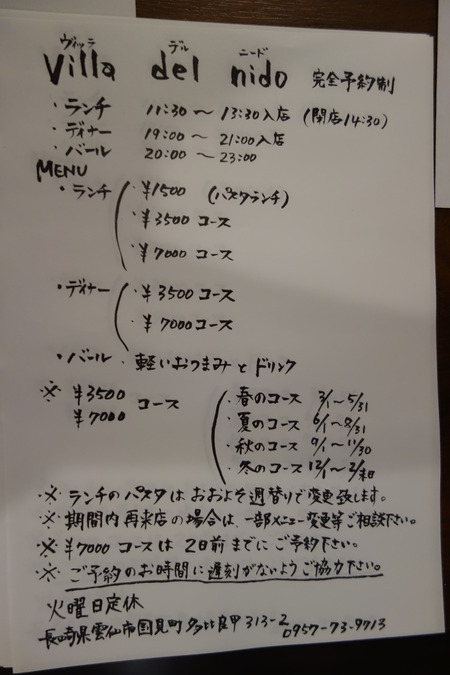 ヴィッラ デル ニード
Villa del nido 完全予約制
・ランチ 11:30〜13:30入店 (閉店14:30)
・ディナー 19:00〜21:00入店
・バール 20:00〜23:00
MENU
・ランチ ・¥1500 (パスタランチ)
・¥3500 コース
・¥7000 コース
・ディナー ・¥3500 コース
・¥7000コース
・バール ・軽いおつまみとドリンク
※ ¥3500 ¥7000 コース
・春のコース 3/1〜5/31
・夏のコース 6/1〜8/31
・秋のコース 9/1〜11/30
・冬のコース 12/1〜2/末日
※ ランチのパスタはおおよそ週替りで変更致します。
※ 期間内再来店の場合は、一部メニュー変更等ご相談下さい。
※ ¥7000コースは2日前までにご予約下さい。
※ ご予約のお時間に遅刻がないようご協力下さい。
火曜日定休
長崎県雲仙市国見町多比良甲313-2 0957-73-9713